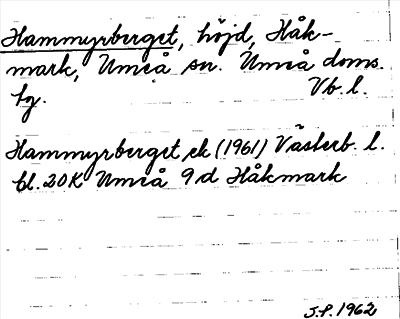 Hammyrberget, höjd, Håk-
mark, Umeå sn. Umeå doms.
hg. Vb. l.
Hammyrberget, ek (1961) Västerb. l.
bl. 20K Umeå 9d Håkmark
S.P. 1962